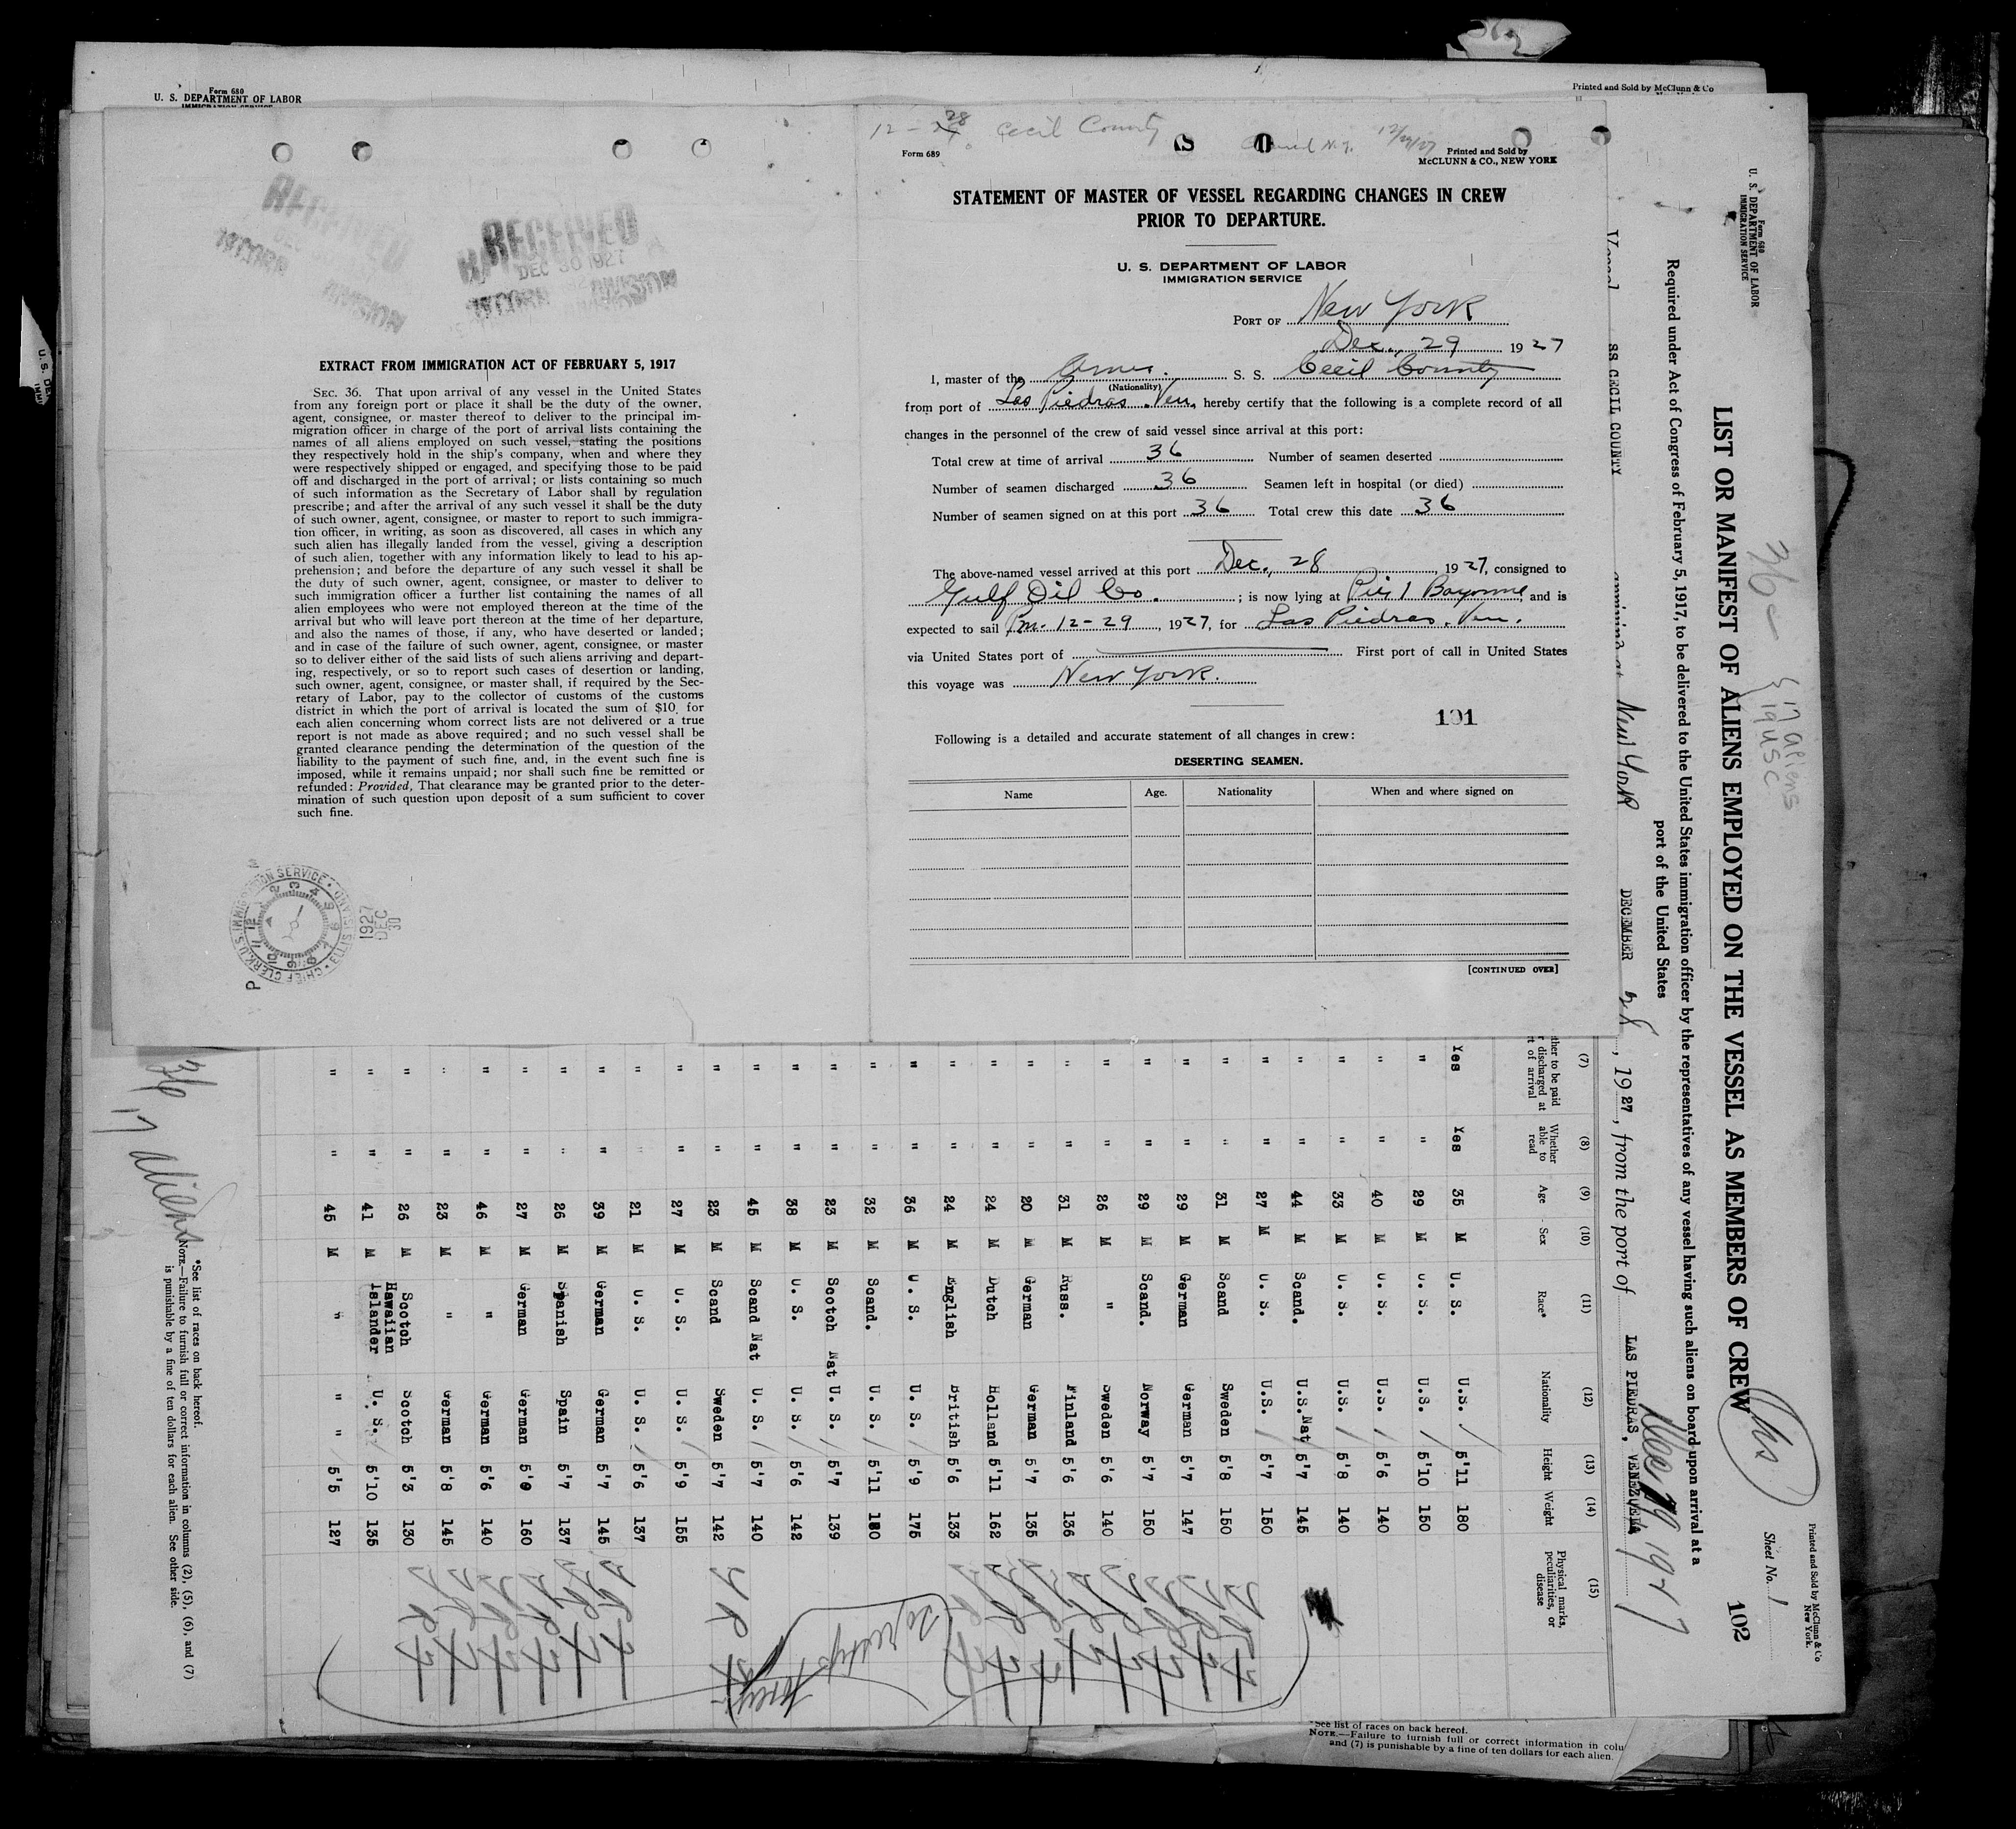 Form 680
U. S. DEPARTMENT OF LABOR
IMMIGRATION SERVICE
Printed and Sold by McClunn & Co
RECEIVED
DEC 30 1927
DIVISION
EXTRACT FROM IMMIGRATION ACT OF FEBRUARY 5, 1917
SEC. 36. That upon arrival of any vessel in the United States
from any foreign port or place it shall be the duty of the owner,
agent, consignee, or master thereof to deliver to the principal im-
migration officer in charge of the port of arrival lists containing the
names of all aliens employed on such vessel, stating the positions
they respectively hold in the ship's company, when and where they
were respectively shipped or engaged, and specifying those to be paid
off and discharged in the port of arrival; or lists containing so much
of such information as the Secretary of Labor shall by regulation
prescribe; and after the arrival of any such vessel it shall be the duty
of such owner, agent, consignee, or master to report to such immigra-
tion officer, in writing, as soon as discovered, all cases in which any
such alien has illegally landed from the vessel, giving a description
of such alien, together with any information likely to lead to his ap-
prehension; and before the departure of any such vessel it shall be
the duty of such owner, agent, consignee, or master to deliver to
such immigration officer a further list containing the names of all
alien employees who were not employed thereon at the time of the
arrival but who will leave port thereon at the time of her departure,
and also the names of those, if any, who have deserted or landed;
and in case of the failure of such owner, agent, consignee, or master
so to deliver either of the said lists of such aliens arriving and depart-
ing, respectively, or so to report such cases of desertion or landing,
such owner, agent, consignee, or master shall, if required by the Sec-
retary of Labor, pay to the collector of customs of the customs
district in which the port of arrival is located the sum of $10 for
each alien concerning whom correct lists are not delivered or a true
report is not made as above required; and no such vessel shall be
granted clearance pending the determination of the question of the
liability to the payment of such fine, and, in the event such fine is
imposed, while it remains unpaid; nor shall such fine be remitted or
refunded: Provided, That clearance may be granted prior to the deter-
mination of such question upon deposit of a sum sufficient to cover
such fine.
CHIEF CLERK, U.S. IMMIGRATION SERVICE
1927 DEC 30
P
12-28 Cecil County
12/29/27
Form 689
Printed and Sold by
McCLUNN & CO., NEW YORK
STATEMENT OF MASTER OF VESSEL REGARDING CHANGES IN CREW
PRIOR TO DEPARTURE.
U. S. DEPARTMENT OF LABOR
IMMIGRATION SERVICE
PORT OF New York
Dec. 29 1927
I, master of the Amer. S. S. Cecil County
(Nationality)
from port of Las Piedras, Ven, hereby certify that the following is a complete record of all
changes in the personnel of the crew of said vessel since arrival at this port:
Total crew at time of arrival 36 Number of seamen deserted
Number of seamen discharged 36 Seamen left in hospital (or died)
Number of seamen signed on at this port 36 Total crew this date 36
The above-named vessel arrived at this port Dec. 28, 1927, consigned to
Gulf Oil Co. ; is now lying at Pier 1 Bayonne, and is
expected to sail Pm. 12-29, 1927, for Las Piedras, Ven.
via United States port of First port of call in United States
this voyage was New York.
101
Following is a detailed and accurate statement of all changes in crew:
DESERTING SEAMEN.
Name Age. Nationality When and where signed on
[CONTINUED OVER]
Form 680
U. S. DEPARTMENT OF LABOR
IMMIGRATION SERVICE
Printed and Sold by McClunn & Co
New York.
Sheet No. 1
102
36 C
17 aliens
19 USC
LIST OR MANIFEST OF ALIENS EMPLOYED ON THE VESSEL AS MEMBERS OF CREW
Required under Act of Congress of February 5, 1917, to be delivered to the United States immigration officer by the representatives of any vessel having such aliens on board upon arrival at a
port of the United States
Vessel SS CECIL COUNTY arriving at New York DECEMBER 28, 1927, from the port of LAS PIEDRAS, VENEZUELA
Dec 29, 1927
(7) (8) (9) (10) (11) (12) (13) (14) (15)
Whether able to read Age Sex Race* Nationality Height Weight Physical marks, peculiarities, or disease
Yes Yes 35 M U. S. U.S. 5'11 180
" " 29 M U. S. U.S. 5'10 150
" " 40 M U. S. U.S. 5'6 140
" " 33 M U. S. U.S. 5'8 140
" " 44 M Scand. U.S.Nat 5'7 145
" " 27 M U. S. U.S. 5'7 150
" " 31 M Scand Sweden 5'8 150
" " 29 M German German 5'7 147
" " 29 M Scand. Norway 5'7 150
" " 26 M " Sweden 5'6 140
" " 31 M Russ. Finland 5'6 136
" " 20 M German German 5'7 135
" " 24 M Dutch Holland 5'11 162
" " 24 M English British 5'6 133
" " 36 M U. S. U. S. 5'9 175
" " 32 M Scand. U. S. 5'11 180
" " 23 M Scotch Nat U. S. 5'7 139
" " 38 M U. S. U. S. 5'6 142
" " 45 M Scand Nat U. S. 5'7 140
" " 23 M Scand Sweden 5'7 142
" " 27 M U. S. U. S. 5'9 155
" " 21 M U. S. U. S. 5'6 137
" " 39 M German German 5'7 145
" " 26 M Spanish Spain 5'7 137
" " 27 M German German 5'9 160
" " 46 M " German 5'6 140
" " 23 M " German 5'8 145
" " 26 M Scotch Scotch 5'3 130
" " 41 M Hawaiian Islander U. S. 5'10 135
" " 45 M " " 5'5 127
36
17 aliens
*See list of races on back hereof.
NOTE.—Failure to furnish full or correct information in columns (2), (5), (6), and (7)
is punishable by a fine of ten dollars for each alien. See other side.
*See list of races on back hereof.
NOTE.—Failure to furnish full or correct information in colu
and (7) is punishable by a fine of ten dollars for each alien.